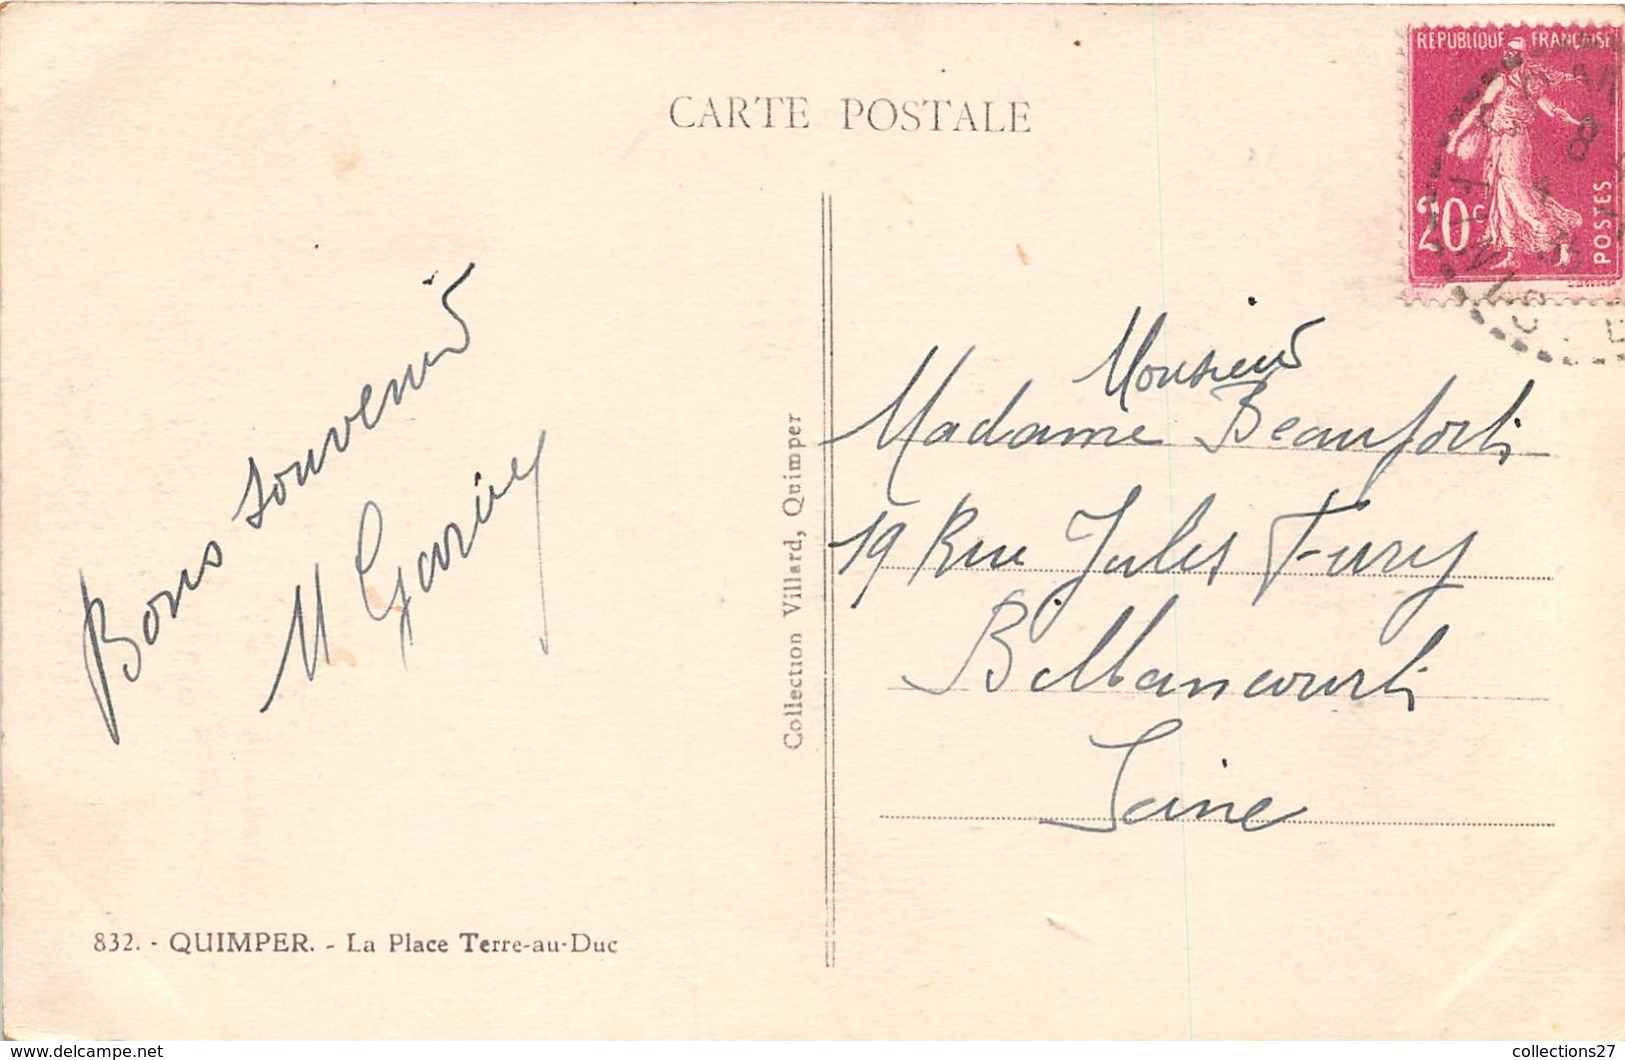 CARTE POSTALE
REPUBLIQUE FRANCAISE
20c
POSTES
Bons souvenirs
M
Monsieur
Madame Beaufort
19 Rue Jules Ferry
Billancourt
Seine
Collection Villard, Quimper
832. - QUIMPER. - La Place Terre-au-Duc
http://www.delcampe.net
collections27